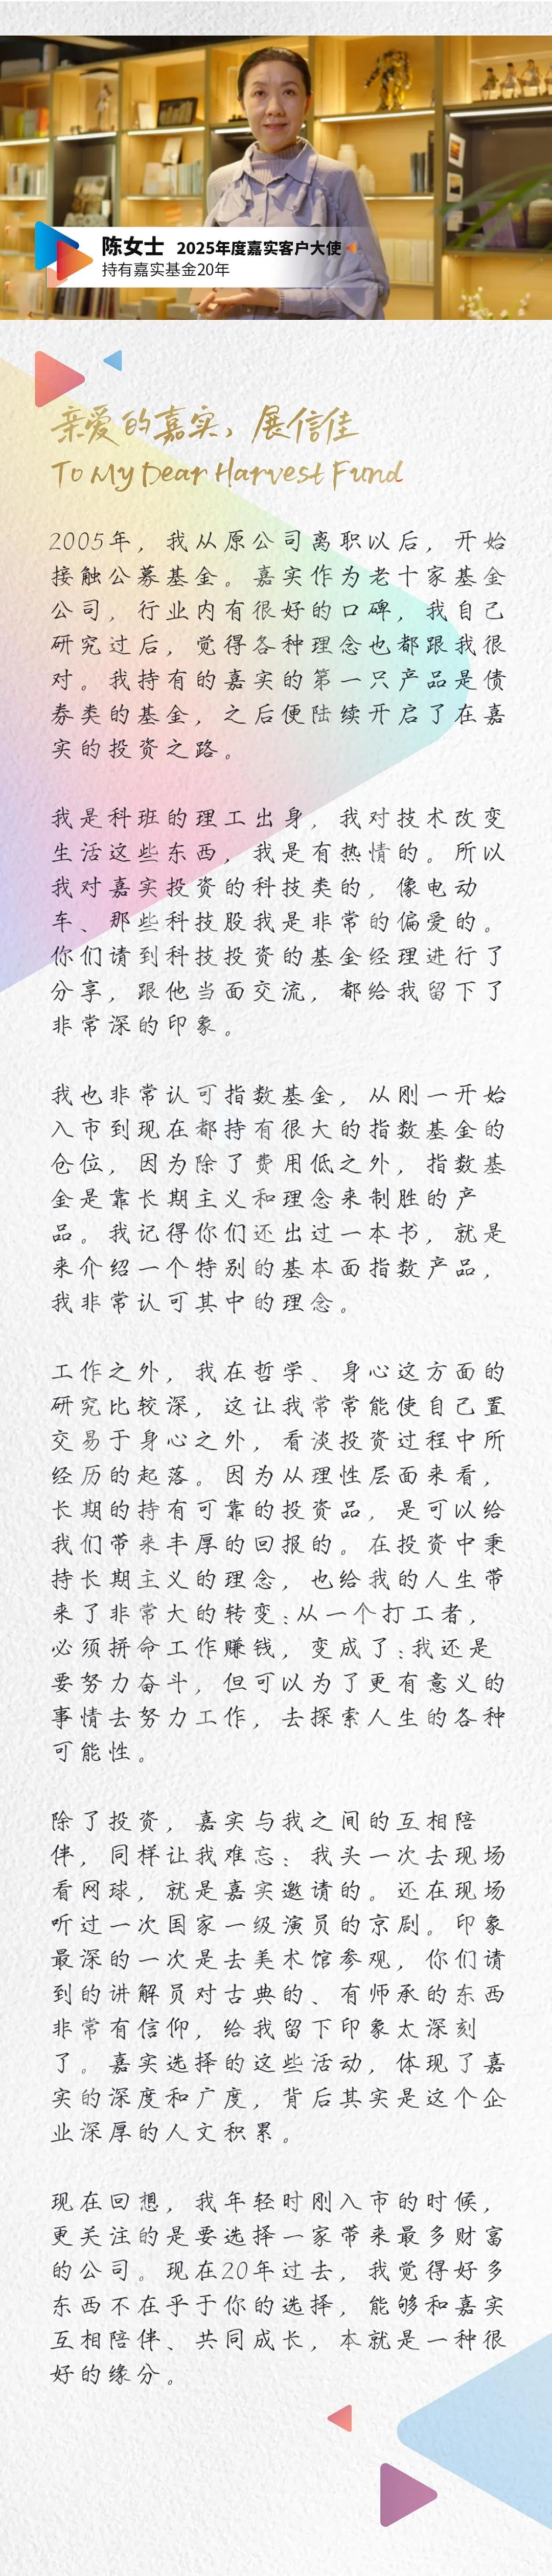 陈女士 2025年度嘉实客户大使
持有嘉实基金20年
亲爱的嘉实，展信佳
To My Dear Harvest Fund
2005年，我从原公司离职以后，开始
接触公募基金。嘉实作为老十家基金
公司，行业内有很好的口碑，我自己
研究过后，觉得各种理念也都跟我很
对。我持有的嘉实的第一只产品是债
券类的基金，之后便陆续开启了在嘉
实的投资之路。
我是科班的理工出身，我对技术改变
生活这些东西，我是有热情的。所以
我对嘉实投资的科技类的，像电动
车、那些科技股我是非常的偏爱的。
你们请到科技投资的基金经理进行了
分享，跟他当面交流，都给我留下了
非常深的印象。
我也非常认可指数基金，从刚一开始
入市到现在都持有很大的指数基金的
仓位，因为除了费用低之外，指数基
金是靠长期主义和理念来制胜的产
品。我记得你们还出过一本书，就是
来介绍一个特别的基本面指数产品，
我非常认可其中的理念。
工作之外，我在哲学、身心这方面的
研究比较深，这让我常常能使自己置
交易于身心之外，看淡投资过程中所
经历的起落。因为从理性层面来看，
长期的持有可靠的投资品，是可以给
我们带来丰厚的回报的。在投资中秉
持长期主义的理念，也给我的人生带
来了非常大的转变:从一个打工者，
必须拼命工作赚钱，变成了:我还是
要努力奋斗，但可以为了更有意义的
事情去努力工作，去探索人生的各种
可能性。
除了投资，嘉实与我之间的互相陪
伴，同样让我难忘：我头一次去现场
看网球，就是嘉实邀请的。还在现场
听过一次国家一级演员的京剧。印象
最深的一次是去美术馆参观，你们请
到的讲解员对古典的、有师承的东西
非常有信仰，给我留下印象太深刻
了。嘉实选择的这些活动，体现了嘉
实的深度和广度，背后其实是这个企
业深厚的人文积累。
现在回想，我年轻时刚入市的时候，
更关注的是要选择一家带来最多财富
的公司。现在20年过去，我觉得好多
东西不在乎于你的选择，能够和嘉实
互相陪伴、共同成长，本就是一种很
好的缘分。